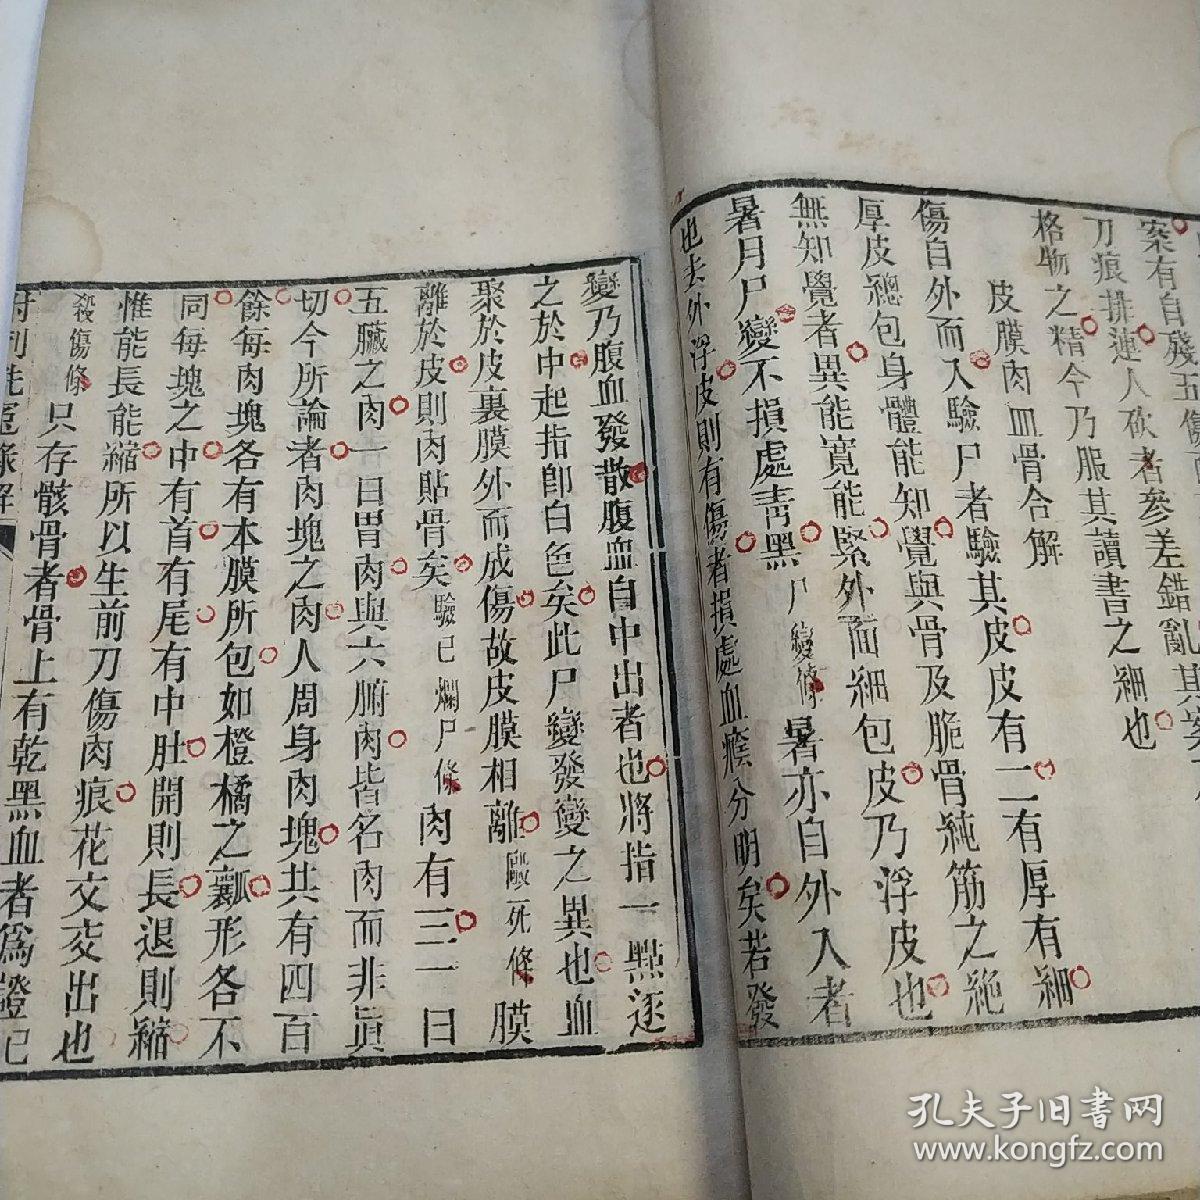 案有自殘五傷
刀痕排連人砍者參差錯亂其案
格物之精今乃服其讀書之細也
皮膜肉血骨合解
傷自外而入驗尸者驗其皮皮有二有厚有細
厚皮總包身體能知覺與骨及脆骨純筋之絶
無知覺者異能寬能緊外面細包皮乃浮皮也
暑月尸變不損處青黑尸變條暑亦自外入者
也去外浮皮則有傷者損處血癊分明矣若發
變乃腹血發散腹血自中出者也將指一㸃逐
之於中起指卽白色矣此尸變發變之異也血
聚於皮裏膜外而成傷故皮膜相離毆死條膜
離於皮則肉貼骨矣驗已爛尸條肉有三一曰
五臟之肉一曰胃肉與六腑肉皆名肉而非眞
切今所論者肉塊之肉人周身肉塊共有四百
餘每肉塊各有本膜所包如橙橘之瓤形各不
同每塊之中有首有尾有中肚開則長退則縮
惟能長能縮所以生前刀傷肉痕花交交出也
殺傷條只存骸骨者骨上有乾黑血者爲證已
附刊洗寃錄解
孔夫子旧书网
www.kongfz.com